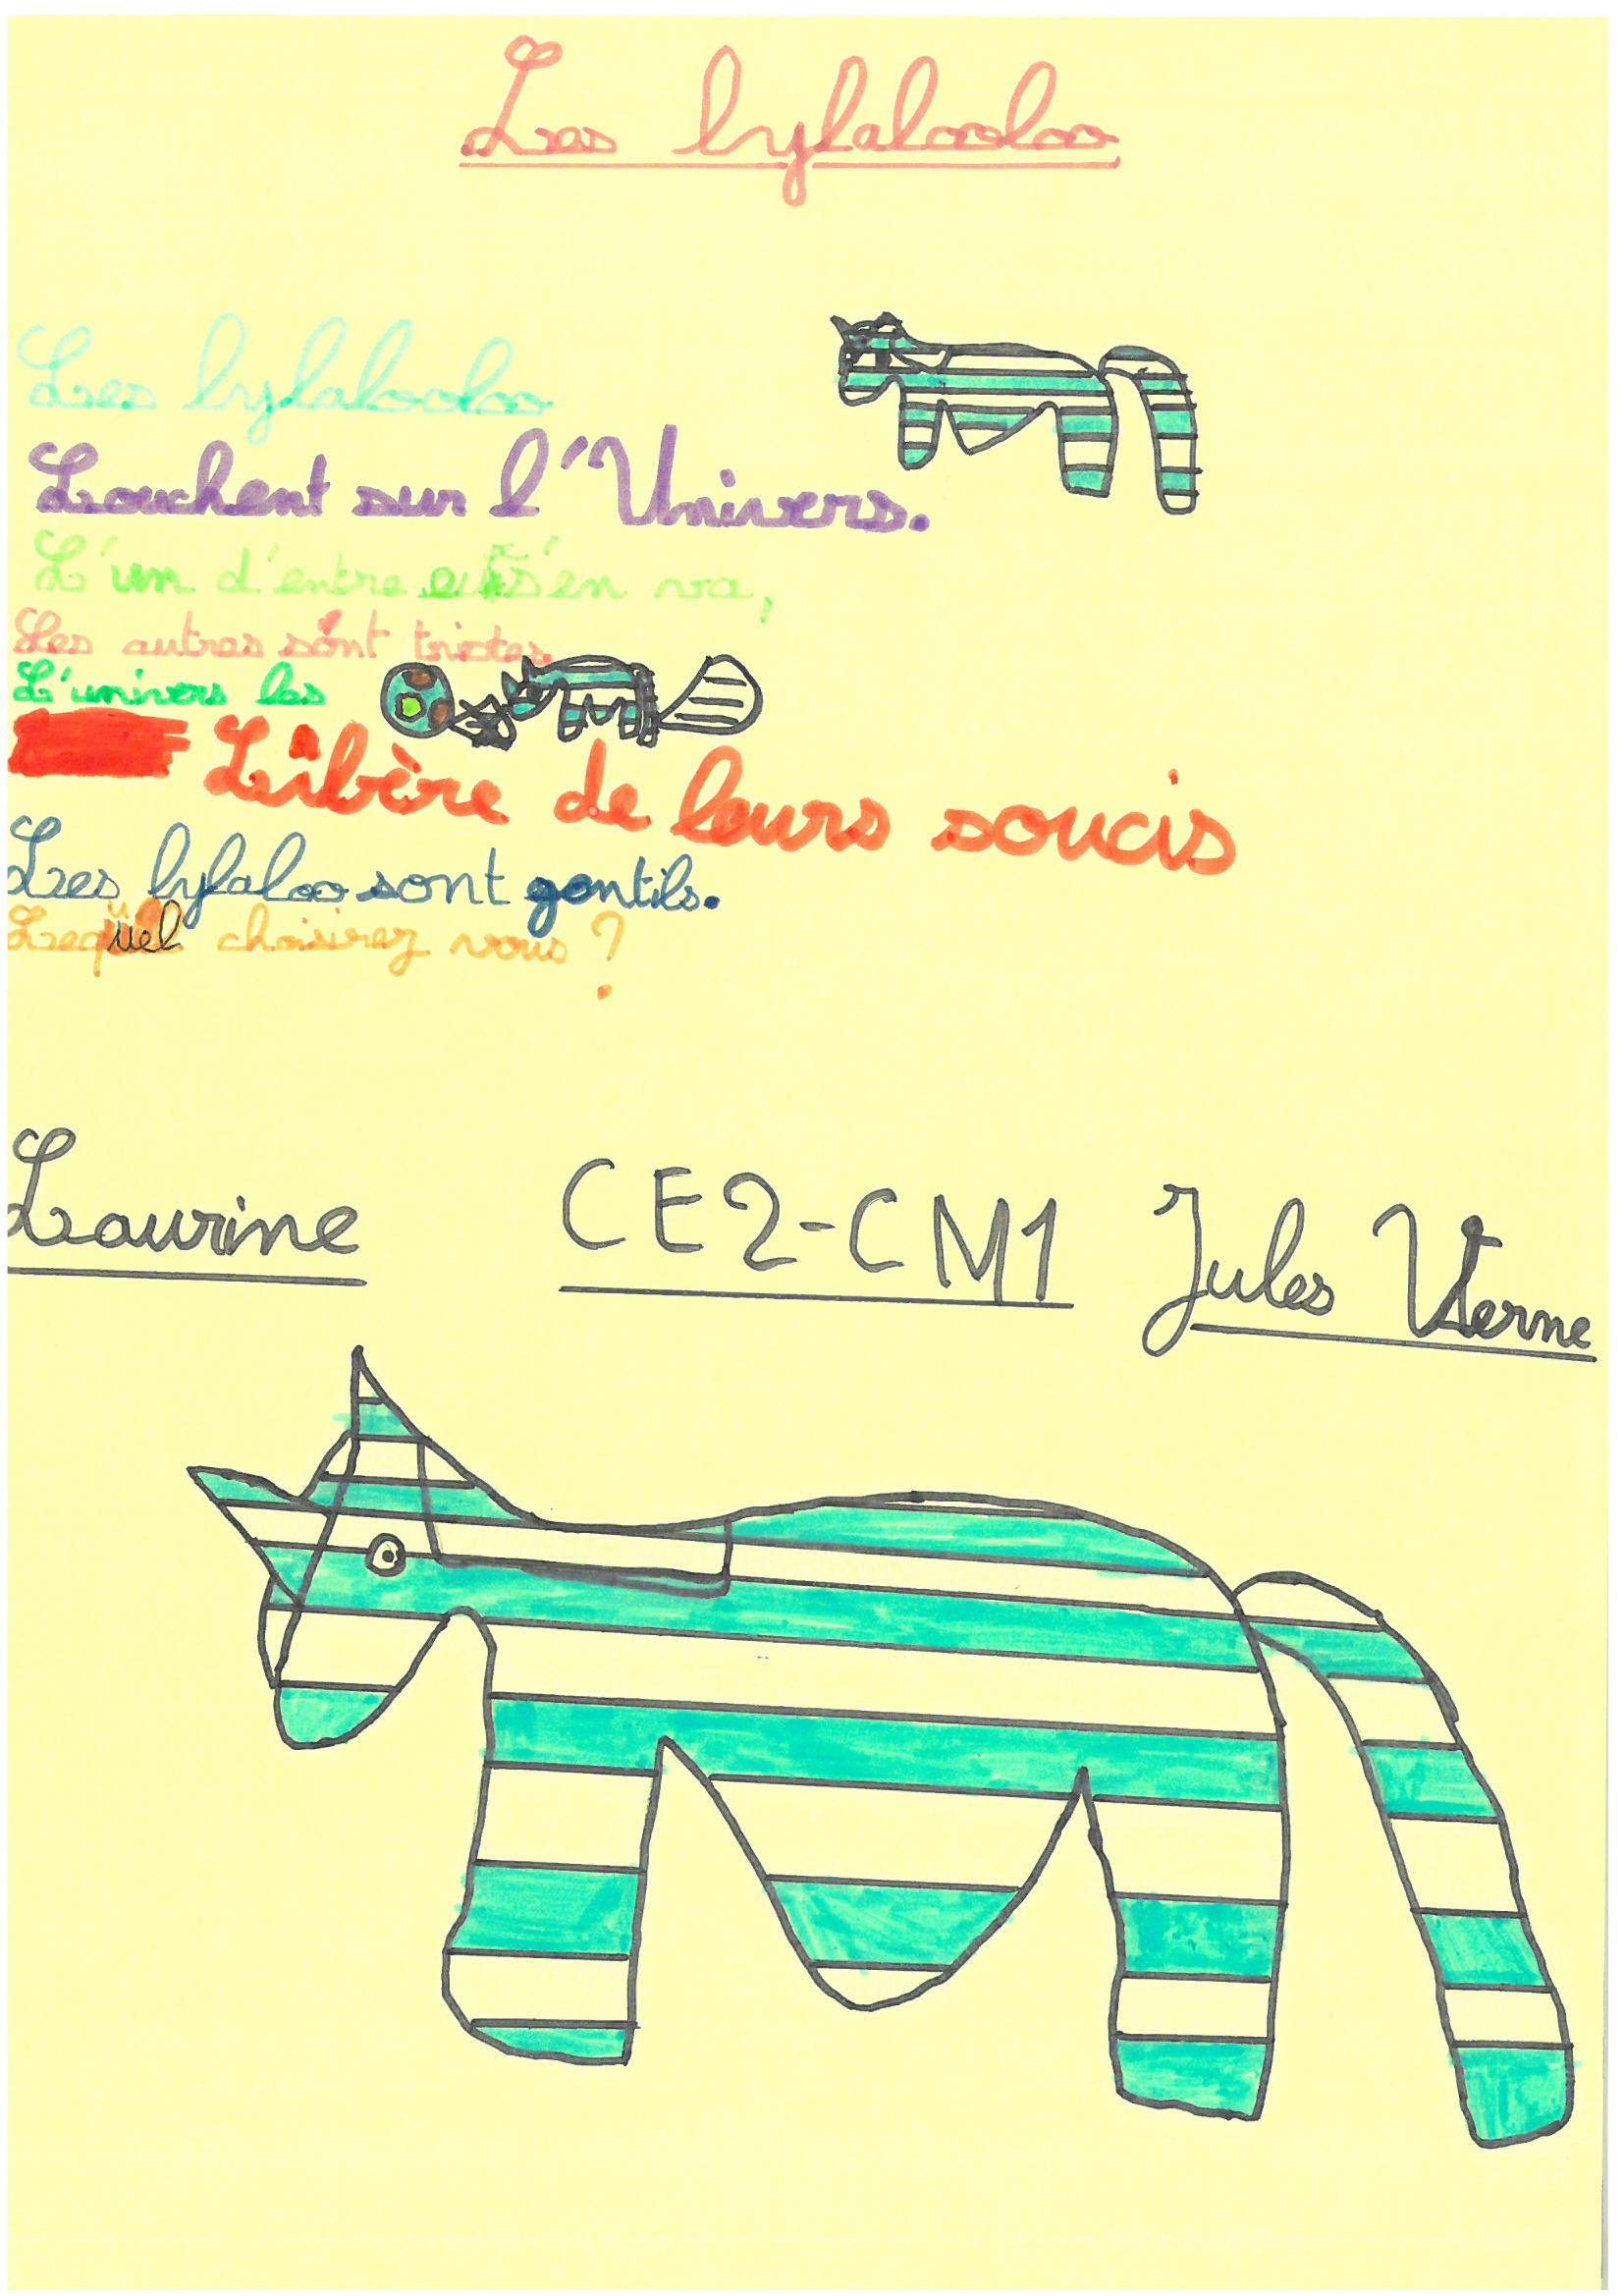 Les lylalooloo
Les lylalooloo
Louchent sur l'Univers.
L'un d'entre eux s'en va,
Les autres sont tristes.
L'univers les
Libère de leurs soucis
Les lylaloo sont gentils.
Lequel choisirez vous ?
Laurine CE2-CM1 Jules Verne